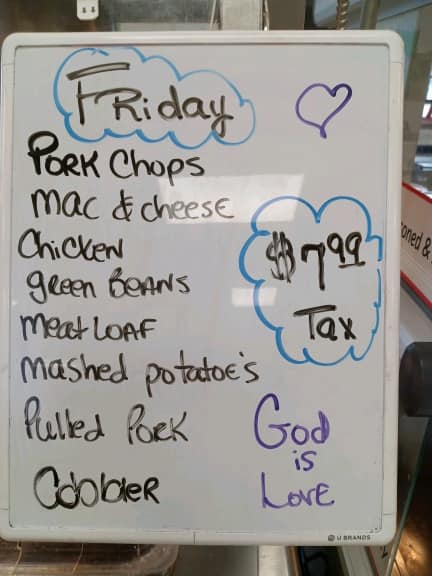 Friday
Pork Chops
Mac & cheese
Chicken
green Beans
Meat Loaf
Mashed potatoe's
Pulled Pork
Cobbler
$7.99
Tax
God
is
Love
oned &
U BRANDS